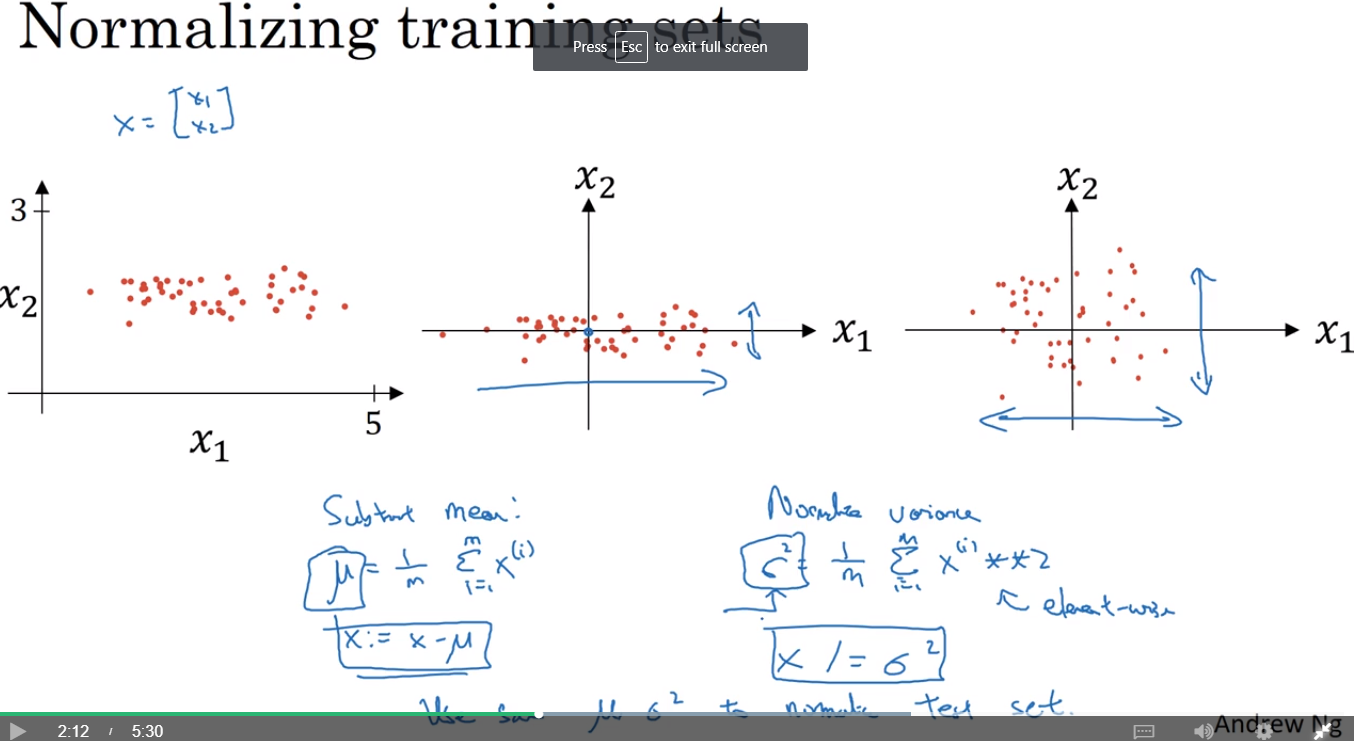 Normalizing training sets
Press Esc to exit full screen
x = [x1
x2]
3
x2
5
x1
x2
x1
x2
x1
Subtract mean:
μ = 1/m Σ i=1 m x(i)
x := x - μ
Normalize variance
σ² = 1/m Σ i=1 m x(i) **2
element-wise
x /= σ²
Use same μ σ² to normalize test set.
2:12 / 5:30
Andrew Ng